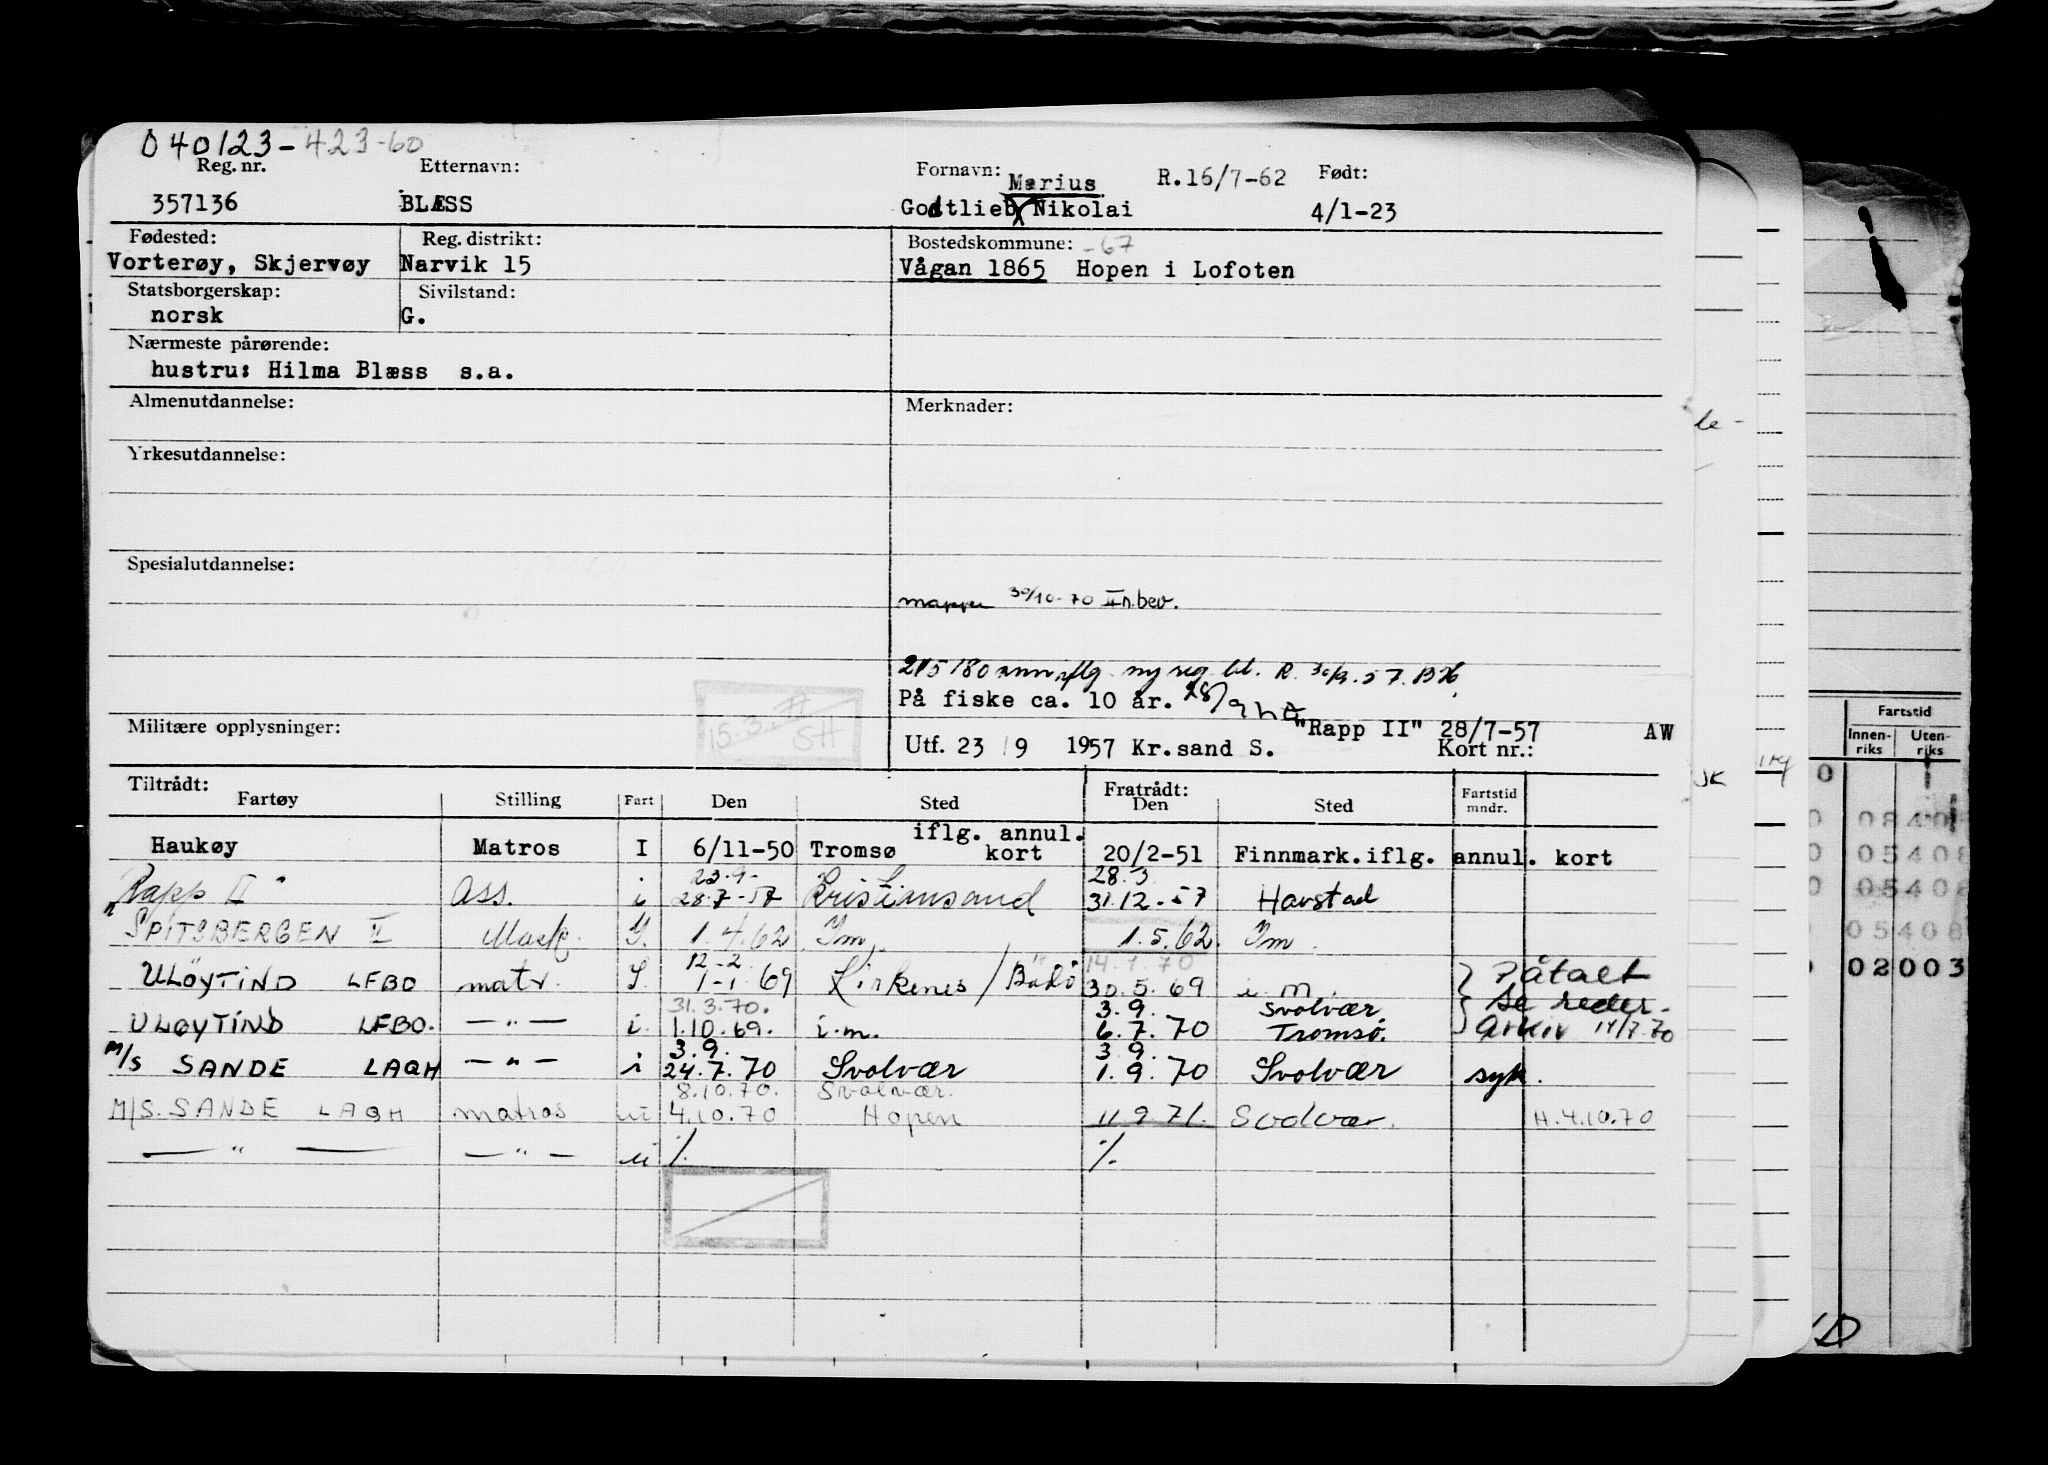 040123-423-60
Reg. nr. Etternavn: Fornavn: Marius R.16/7-62 Født:
357136 BLÆSS Godtlieb Nikolai 4/1-23
Fødested: Reg. distrikt: Bostedskommune: -67
Vorterøy, Skjervøy Narvik 15 Vågan 1865 Hopen i Lofoten
Statsborgerskap: Sivilstand:
norsk G.
Nærmeste pårørende:
hustru: Hilma Blæss s.a.
Almenutdannelse: Merknader:
Yrkesutdannelse:
Spesialutdannelse:
mappe 30/10-70 II n.bev.
215180 ann iflg. ny reg. bl. R.
På fiske ca. 10 år. 28/9
15.3.71 SH
Militære opplysninger: "Rapp II" 28/7-57 AW
Utf. 23/9 1957 Kr.sand S. Kort nr.:
Tiltrådt: Fratrådt:
Fartøy Stilling Fart Den Sted Den Sted Fartstid mndr.
iflg. annul.
Haukøy Matros I 6/11-50 Tromsø kort 20/2-51 Finnmark.iflg. annul. kort
23.9- 28.3
"Rapp II" Ass. i 28.7-57 Kristiansand 31.12-57 Harstad
SPITSBERGEN II 1.4.62 Im. 1.5.62. Im.
12-2 14.1.70
ULØYTIND LFBO matr. 1-1 69 Kirkenes / Bodø 30.5.69 i.m. Påtalt
31.3.70. 3.9. Svolvær se reder-
ULØYTIND LFBO. —"— i. 1.10.69. i.m. 6.7.70 Tromsø. arkiv 14/7.70
3.9. 3.9.
M/S SANDE LAQH —"— i 24.7.70 Svolvær 1.9.70 Svolvær syk.
8.10.70. Svolvær.
M/S. SANDE LAQH matros ui 4.10.70 Hopen 11.9.71. Svolvær. H.4.10.70
—"— —"— ui /. /.
le-
Fartstid
Innen-riks Uten-riks
0
0840
05408
05408
05408
02003